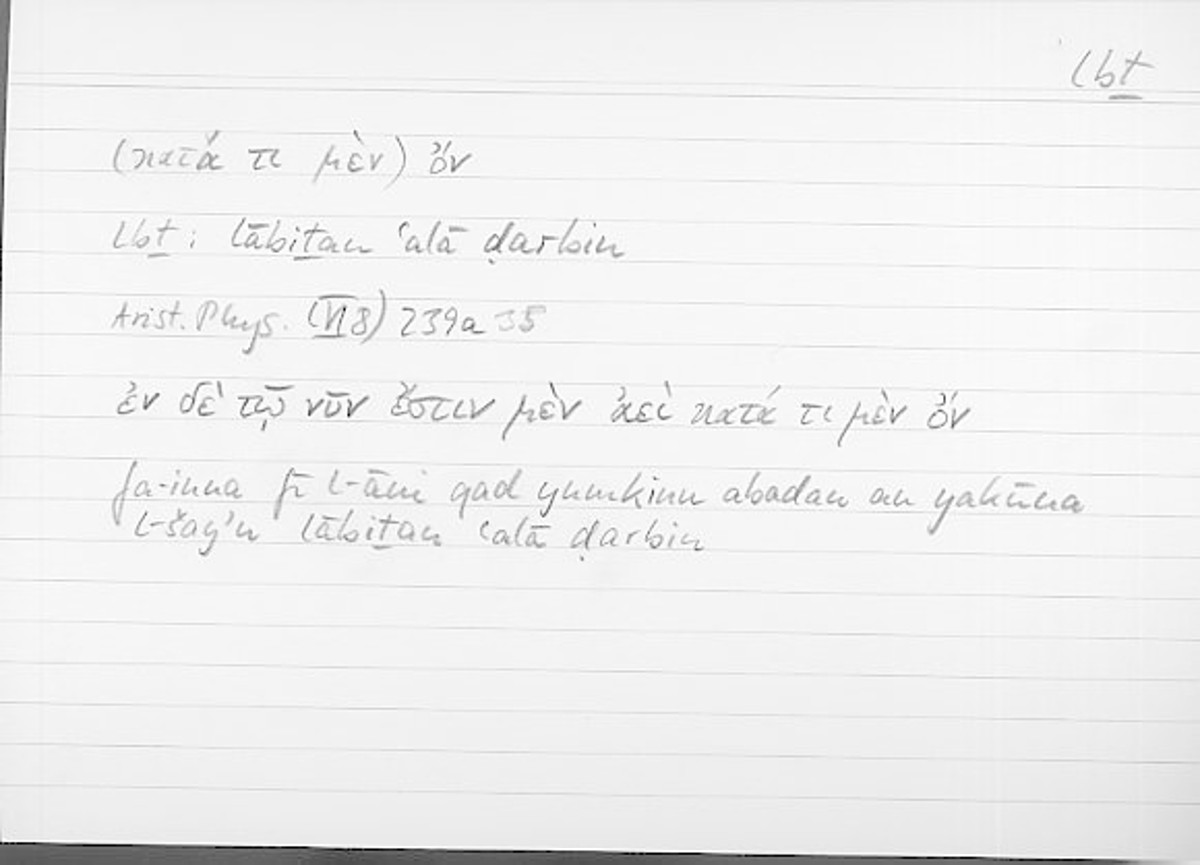 lbṯ
(κατά τι μὲν) ὄν
Lbṯ: lābiṯan ʿalā ḍarbin
Arist. Phys. (VI 8) 239a 35
ἐν δὲ τῷ νῦν ἔστιν μὲν ἀεὶ κατά τι μὲν ὄν
fa-inna fī l-āni qad yumkinu abadan an yakūna
l-šayʾu lābiṯan ʿalā ḍarbin